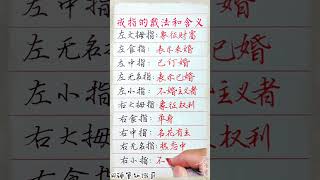 戒指的戴法和含义
左大拇指:象征财富
左食指:表示未婚
左中指:已订婚
左无名指:表示已婚
左小指:不婚主义者
右大拇指:象征权利
右食指:单身
右中指:名花有主
右无名指:热恋中
右小指:不